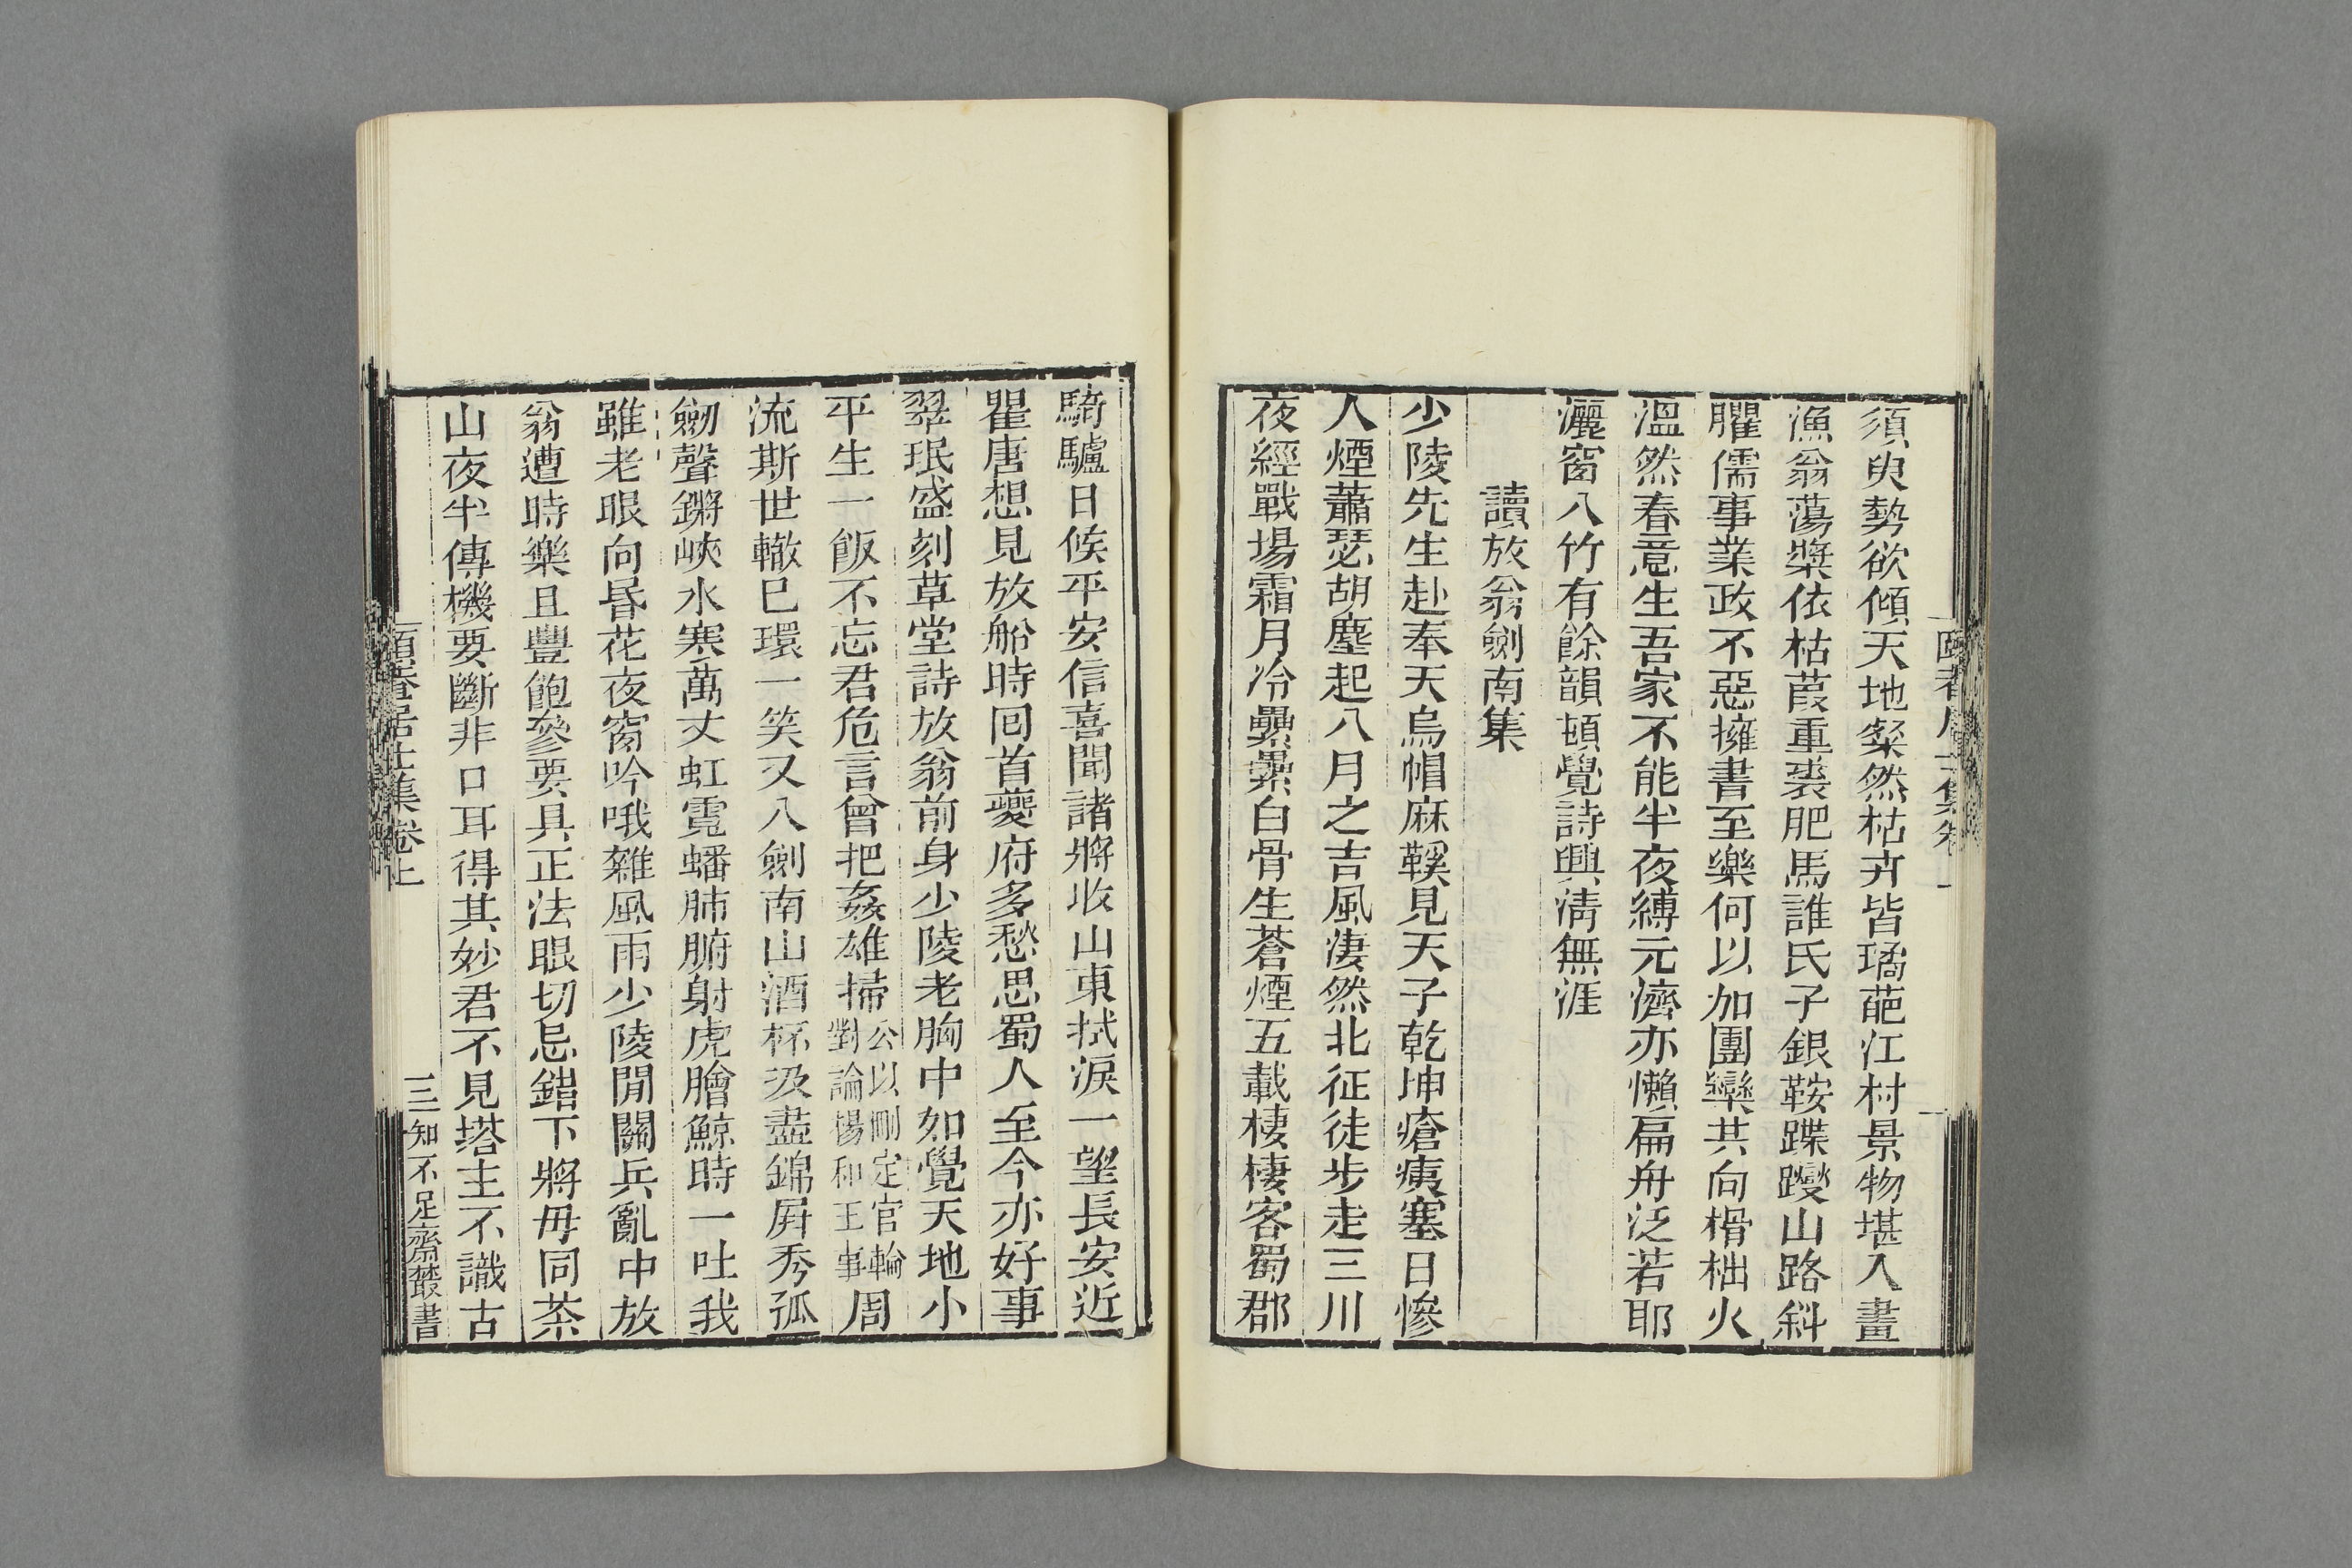 須臾勢欲傾天地粲然枯卉皆璚葩江村景物堪入畫
漁翁蕩槳依枯葭重裘肥馬誰氏子銀鞍蹀躞山路斜
臞儒事業政不惡擁書至樂何以加團欒共向榾柮火
溫然春意生吾家不能半夜縛元濟亦懶扁舟泛若耶
灑窗八竹有餘韻頓覺詩興淸無涯
讀放翁劍南集
少陵先生赴奉天烏帽麻鞵見天子乾坤瘡痍塞日慘
人煙蕭瑟胡塵起八月之吉風淒然北征徒步走三川
夜經戰場霜月冷纍纍白骨生蒼煙五載棲棲客蜀郡
騎驢日候平安信喜聞諸將收山東拭淚一望長安近
瞿唐想見放船時回首夔府多愁思蜀人至今亦好事
翠珉盛刻草堂詩放翁前身少陵老胸中如覺天地小
平生一飯不忘君危言曾把姦雄掃公以刪定官輪對論楊和王事周
流斯世轍已環一笑又入劍南山酒杯汲盡錦屏秀孤
劒聲鏘峽水寒萬丈虹霓蟠肺腑射虎膾鯨時一吐我
雖老眼向昏花夜窗吟哦雜風雨少陵閒關兵亂中放
翁遭時樂且豐飽參要具正法眼切忌錯下將毋同茶
山夜半傳機要斷非口耳得其妙君不見塔主不識古
頤菴居士集卷上
三
知不足齋叢書